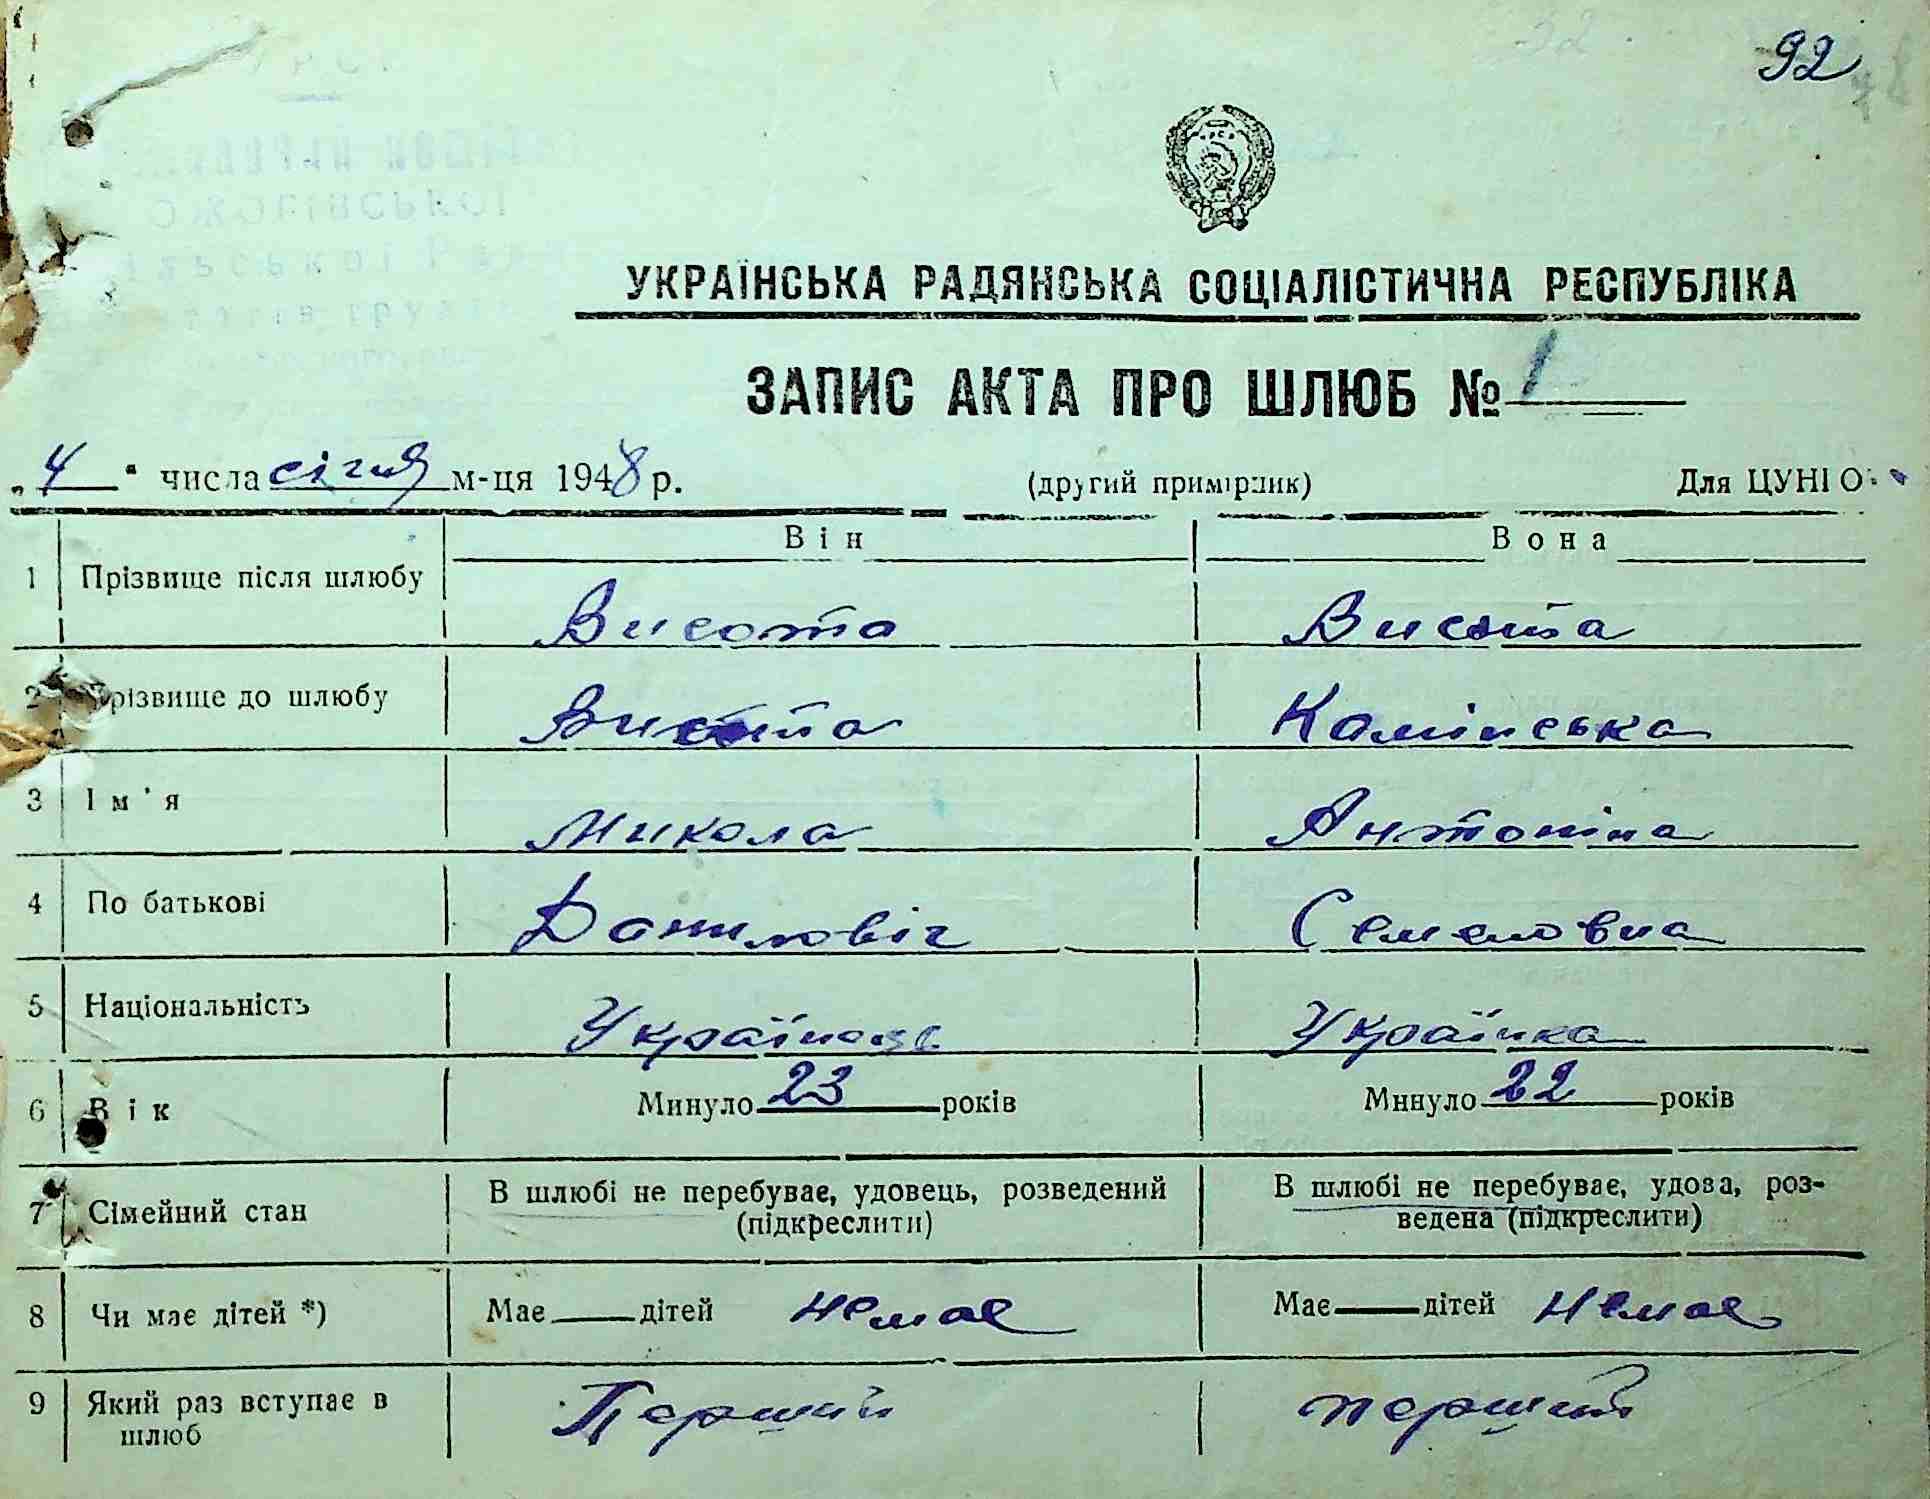 92
УКРАЇНСЬКА РАДЯНСЬКА СОЦІАЛІСТИЧНА РЕСПУБЛІКА
ЗАПИС АКТА ПРО ШЛЮБ № 1
„4“ числа січня м-ця 1948 р. (другий примірник) Для ЦУНІО
Він Вона
1 Прізвище після шлюбу Висота Висота
2 Прізвище до шлюбу Висота Камінська
3 Ім'я Микола Антоніна
4 По батькові Даниловіч Семеловна
5 Національність Українець Українка
6 Вік Минуло 23 років Минуло 22 років
7 Сімейний стан В шлюбі не перебуває, удовець, розведений В шлюбі не перебуває, удова, роз-
(підкреслити) ведена (підкреслити)
8 Чи має дітей *) Має дітей немає Має дітей немає
9 Який раз вступає в Перший перший
шлюб